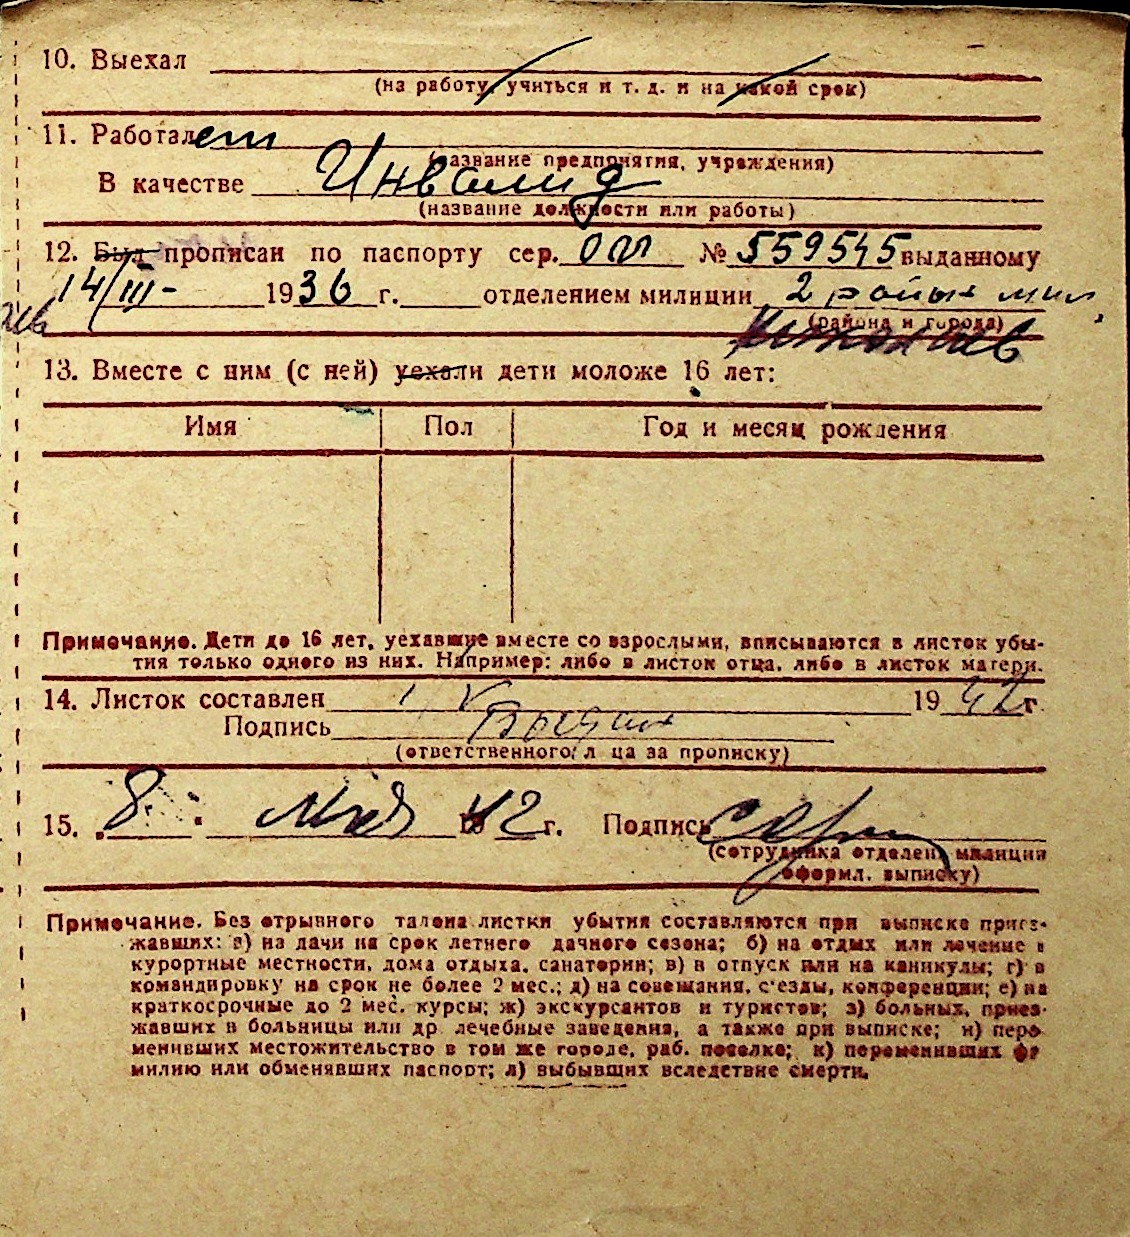 10. Выехал
(на работу, учиться и т. д. и на какой срок)
11. Работает
(название предприятия, учреждения)
В качестве Инвалид
(название должности или работы)
12. Был прописан по паспорту сер. № 559545 выданному
14/III- 1936 г. отделением милиции 2 район мил.
(района и города)
13. Вместе с ним (с ней) уехали дети моложе 16 лет:
Имя Пол Год и месяц рождения
Примечание. Дети до 16 лет, уехавшие вместе со взрослыми, вписываются в листок убы-
тия только одного из них. Например: либо в листок отца, либо в листок матери.
14. Листок составлен 1 V 1942 г
Подпись
(ответственного л ца за прописку)
15. 8. Мая 42 г. Подпись
(сотрудника отделен. милиции
оформл. выписку)
Примечание. Без отрывного талона листки убытия составляются при выписке приез-
жавших: а) из дачи на срок летнего дачного сезона; б) на отдых или лечение в
курортные местности, дома отдыха, санатории; в) в отпуск или на каникулы; г) в
командировку на срок не более 2 мес.; д) на совещания, с'езды, конференции; е) на
краткосрочные до 2 мес. курсы; ж) экскурсантов и туристов; з) больных, приез-
жавших в больницы или др. лечебные заведения, а также при выписке; и) пере
менивших местожительство в том же городе, раб. поселке; к) переменивших фа
милию или обменявших паспорт; л) выбывших вследствие смерти.